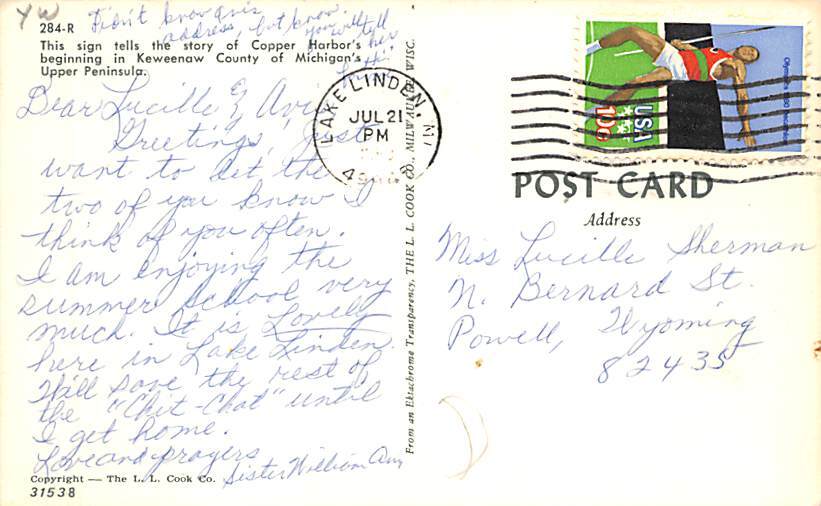 YW
Didn't know avis
address, but know
you will tell
her
284-R
This sign tells the story of Copper Harbor's
beginning in Keweenaw County of Michigan's
Upper Peninsula.
Dear Lucille & Avis
Greetings, Just
want to let the
two of you know I
think of you often.
I am enjoying the
summer school very
much. It is Lovely
here in Lake Linden
Will save the rest of
the "Chit-Chat" until
I get home.
Love and prayers
Sister William Ann
Copyright — The L. L. Cook Co.
31538
From an Ektachrome Transparency, THE L. L. COOK CO., MILWAUKEE, WISC.
LAKE LINDEN, MI
JUL 21
PM
USA
10c
POST CARD
Address
Miss Lucille Sherman
N. Bernard St.
Powell, Wyoming
82435